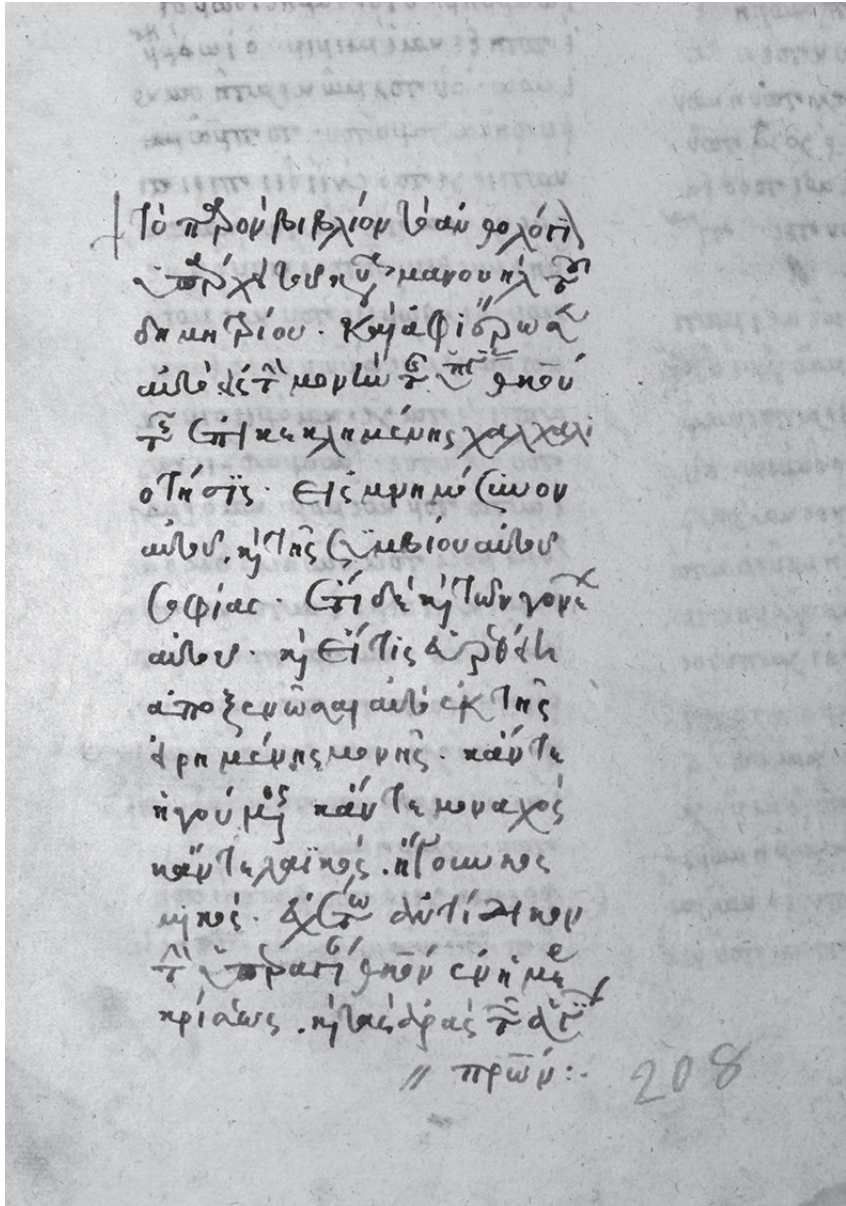 † Τὸ παρὸν βιβλίον τὸ ἀνθολόγιον
ὑπάρχει Μανουὴλ τοῦ
δημητρίου. καὶ ἀφιέρωσα
αὐτὸ εἰς τὴν μονὴν τῆς ὑπεραγίας θκου
τῆς ἐπικεκλημένης χαλκαλι
οτήσης. εἰς μνημόσυνον
αὐτοῦ. καὶ τῆς συμβίου αὐτοῦ
σοφίας. ἔτι δὲ καὶ τῶν γονέων
αὐτοῦ. καὶ εἴ τις βουληθῆ
ἀποξενῶσαι αὐτὸ ἐκ τῆς
εἰρημένης μονῆς. κάν τε
ἡγούμενος κάν τε μοναχὸς
κάν τε λαϊκὸς. ἤτω
ἐχέτω ἀντίδικον
τὴν ὑπεραγίαν θκον ἐν ἡμέρα
κρίσεως. καὶ τὰς ἀρὰς τῶν ἁγίων
πρων:·
208